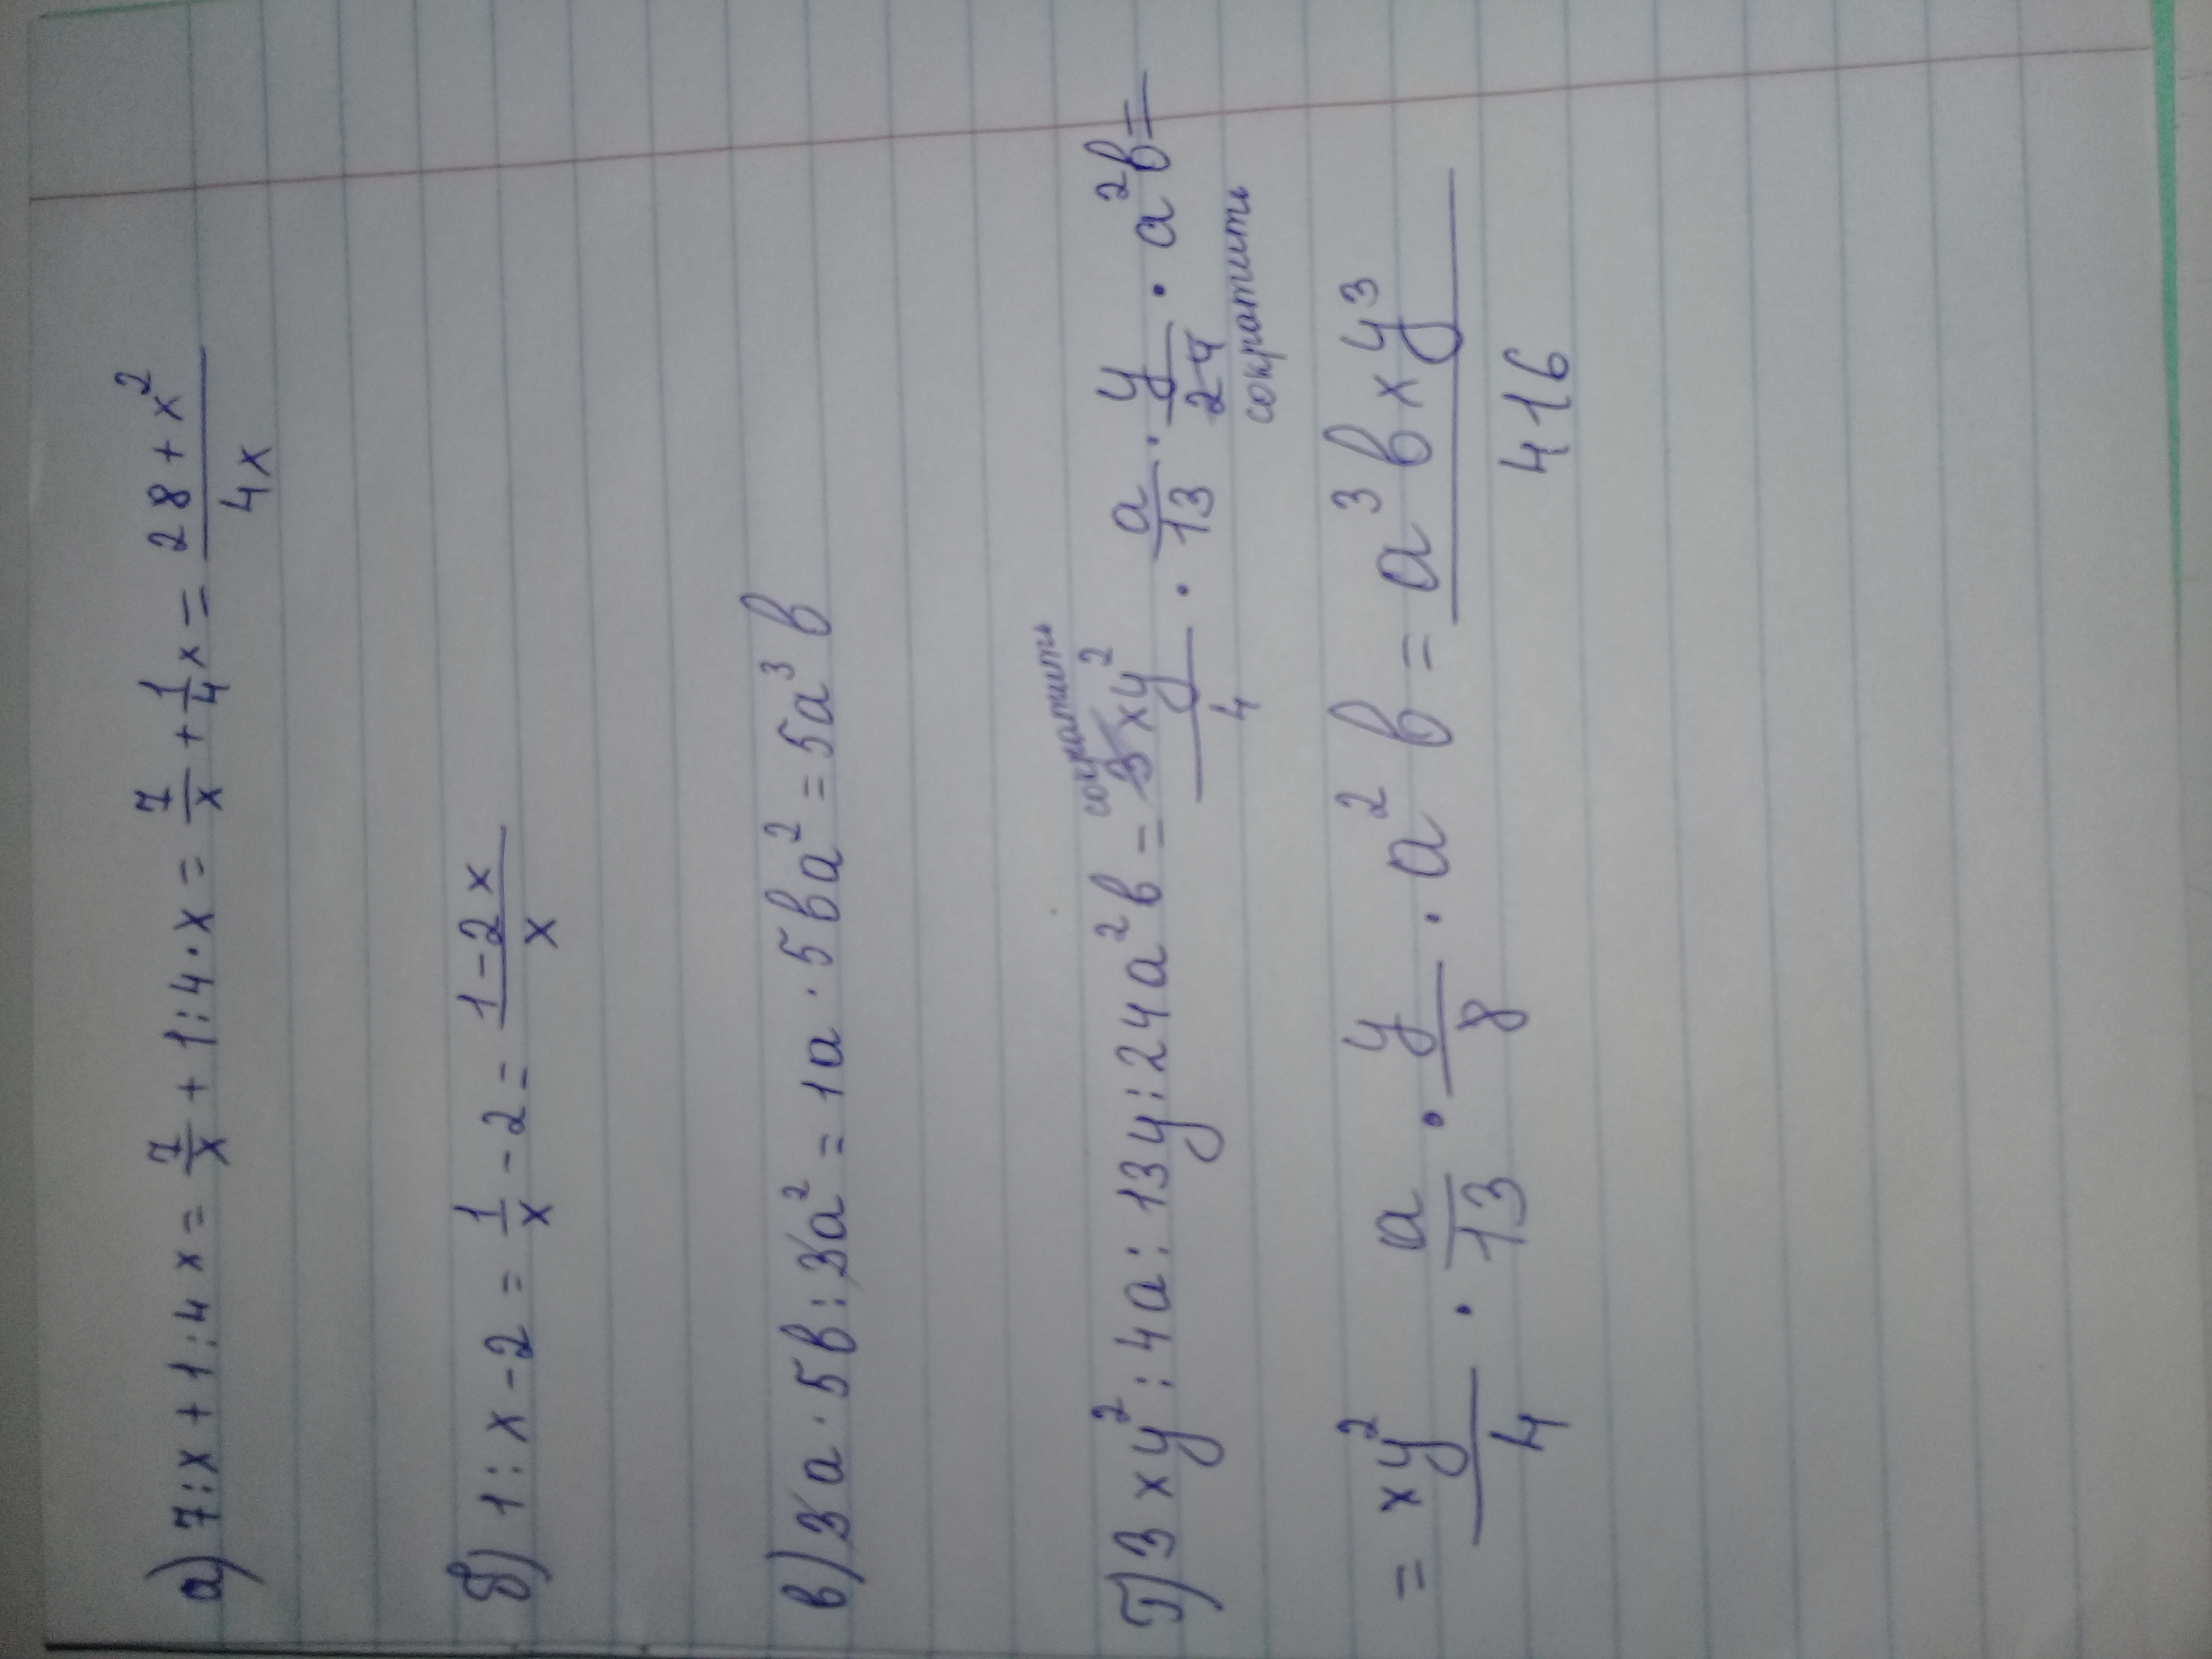 а) 7 : x + 1 : 4 x = 7/x + 1 : 4 · x = 7/x + 1/4 x = (28 + x²)/(4x)
б) 1 : x - 2 = 1/x - 2 = (1 - 2x)/x
в) 3a · 5b : 3a² = 1a · 5ba² = 5a³b
г) 3xy² : 4a : 13y : 24a²b = 3xy²/4 · a/13 · y/24 · a²b =
сократить
сократить
= xy²/4 · a/13 · y/8 · a²b = a³bxy³/416